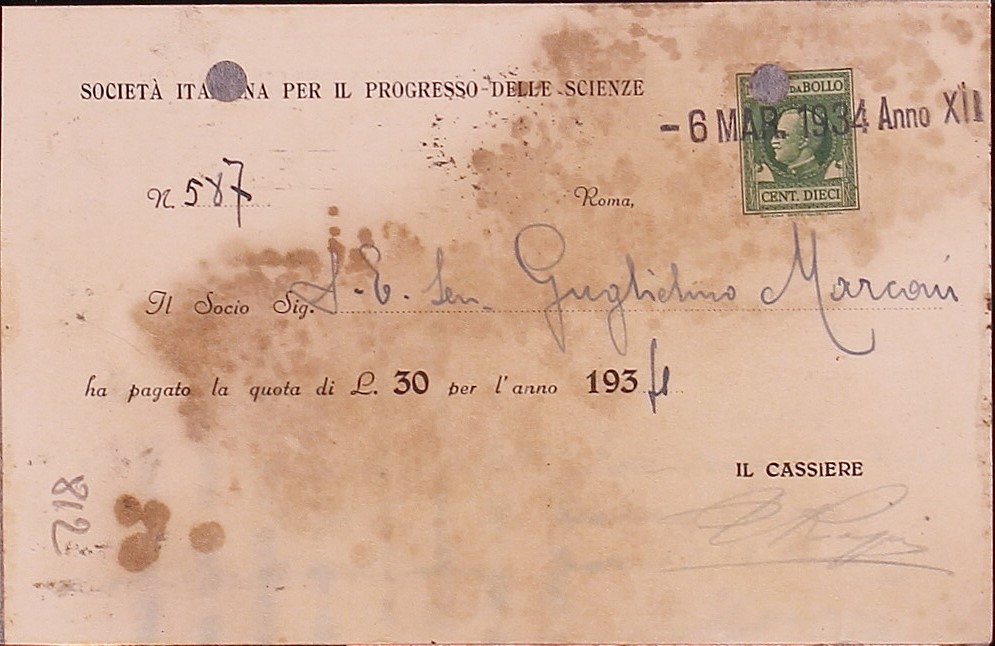 SOCIETÀ ITALIANA PER IL PROGRESSO DELLE SCIENZE
DA BOLLO
- 6 MAR. 1934 Anno XII
CENT. DIECI
N. 587
Roma,
Il Socio Sig. S. E. Sen. Guglielmo Marconi
ha pagato la quota di L. 30 per l'anno 1934
IL CASSIERE